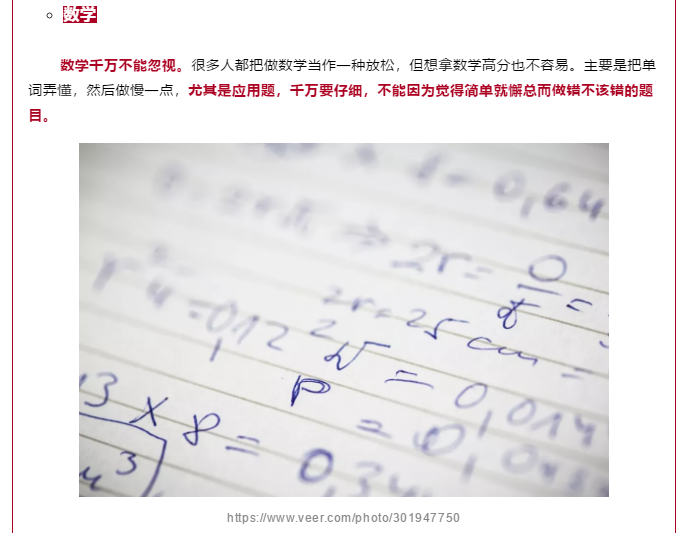 数学
数学千万不能忽视。很多人都把做数学当作一种放松，但想拿数学高分也不容易。主要是把单
词弄懂，然后做慢一点，尤其是应用题，千万要仔细，不能因为觉得简单就懈怠而做错不该错的题
目。
2r =
= 0,12
2r = 25 cm =
= 0,014
P
3 x 8 = 0,34
https://www.veer.com/photo/301947750